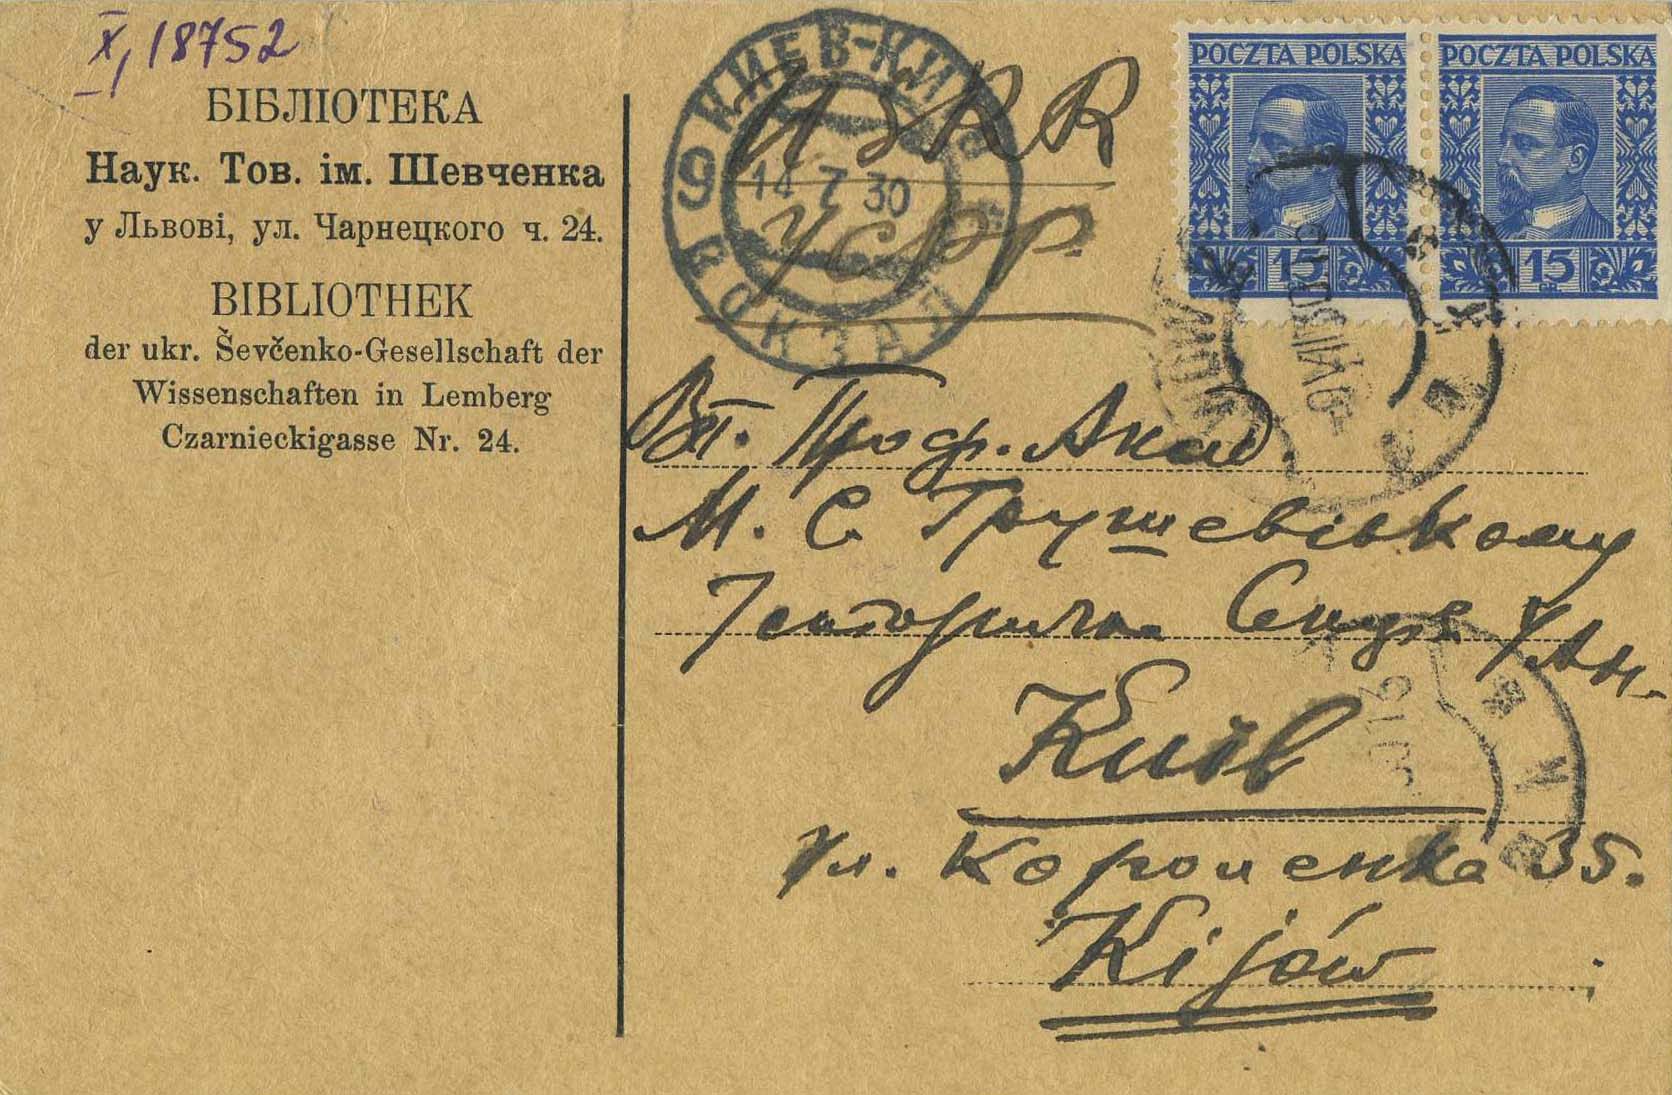 X, 18752
БІБЛІОТЕКА
Наук. Тов. ім. Шевченка
у Львові, ул. Чарнецкого ч. 24.
BIBLIOTHEK
der ukr. Ševčenko-Gesellschaft der
Wissenschaften in Lemberg
Czarnieckigasse Nr. 24.
КИЕВ-КИЇВ
9
14 7 30
ВОКЗАЛ
USRR
УСРР
POCZTA POLSKA
15
POCZTA POLSKA
15
Вп. Проф. Акад.
М. С. Грушевському
Історична Секція У Ак.
Київ
Ул. Короленка 35.
Kijów